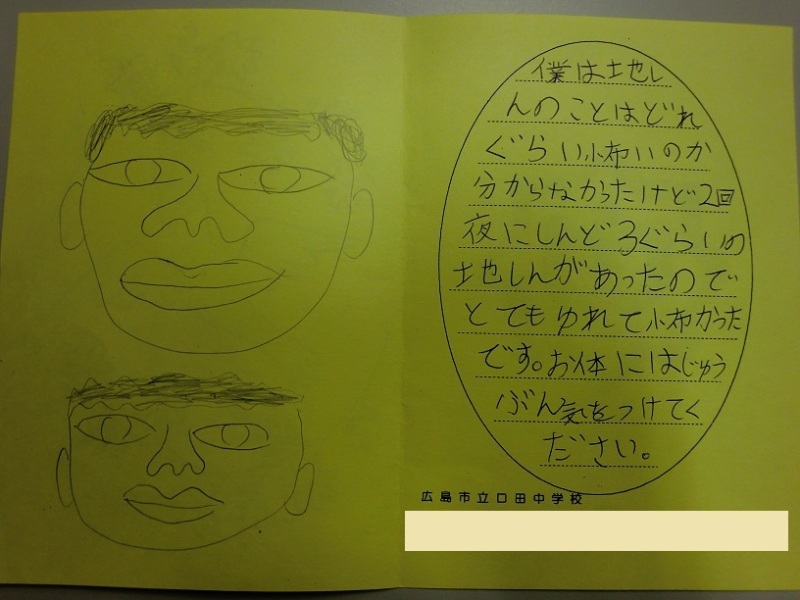 僕は地し
んのことはどれ
ぐらい怖いのか
分からなかったけど2回
夜にしんど3ぐらいの
地しんがあったので
とてもゆれて怖かった
です。お体にはじゅう
ぶん気をつけてく
ださい。
広島市立口田中学校